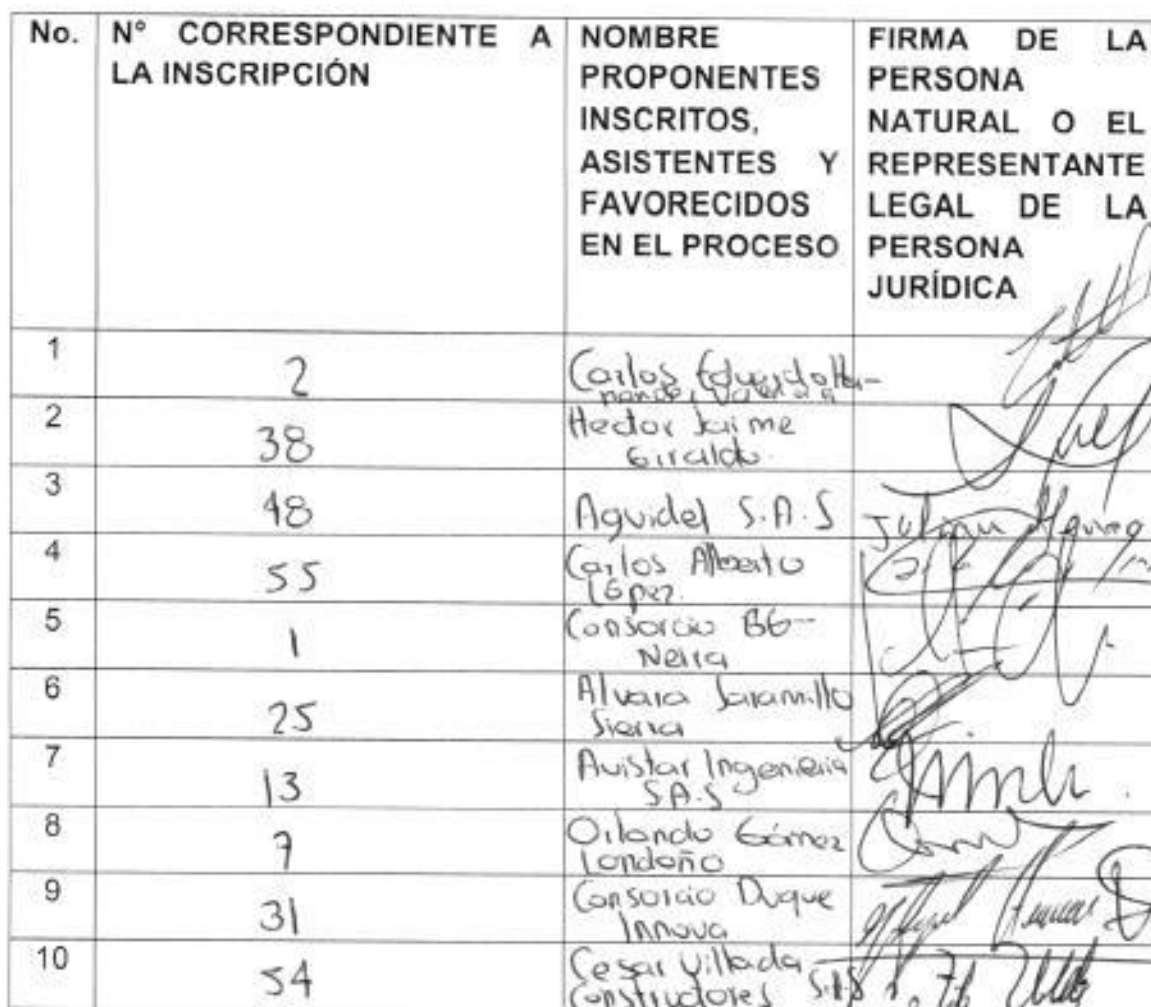 No. N° CORRESPONDIENTE A LA INSCRIPCIÓN NOMBRE PROPONENTES INSCRITOS, ASISTENTES Y FAVORECIDOS EN EL PROCESO FIRMA DE LA PERSONA NATURAL O EL REPRESENTANTE LEGAL DE LA PERSONA JURÍDICA
1 2 Carlos Eduardo Her-
2 38 Hector Jaime
Giraldo.
3 48 Aguidel S.A.S
4 55 Carlos Alberto
López.
5 1 Consorcio BG-
Neira
6 25 Alvaro Jaramillo
Sierra
7 13 Avistar Ingenieria
S.A.S
8 7 Orlando Gómez
Londoño
9 31 Consorcio Duque
Innova
10 54 Cesar Villada
Constructores S.A.S